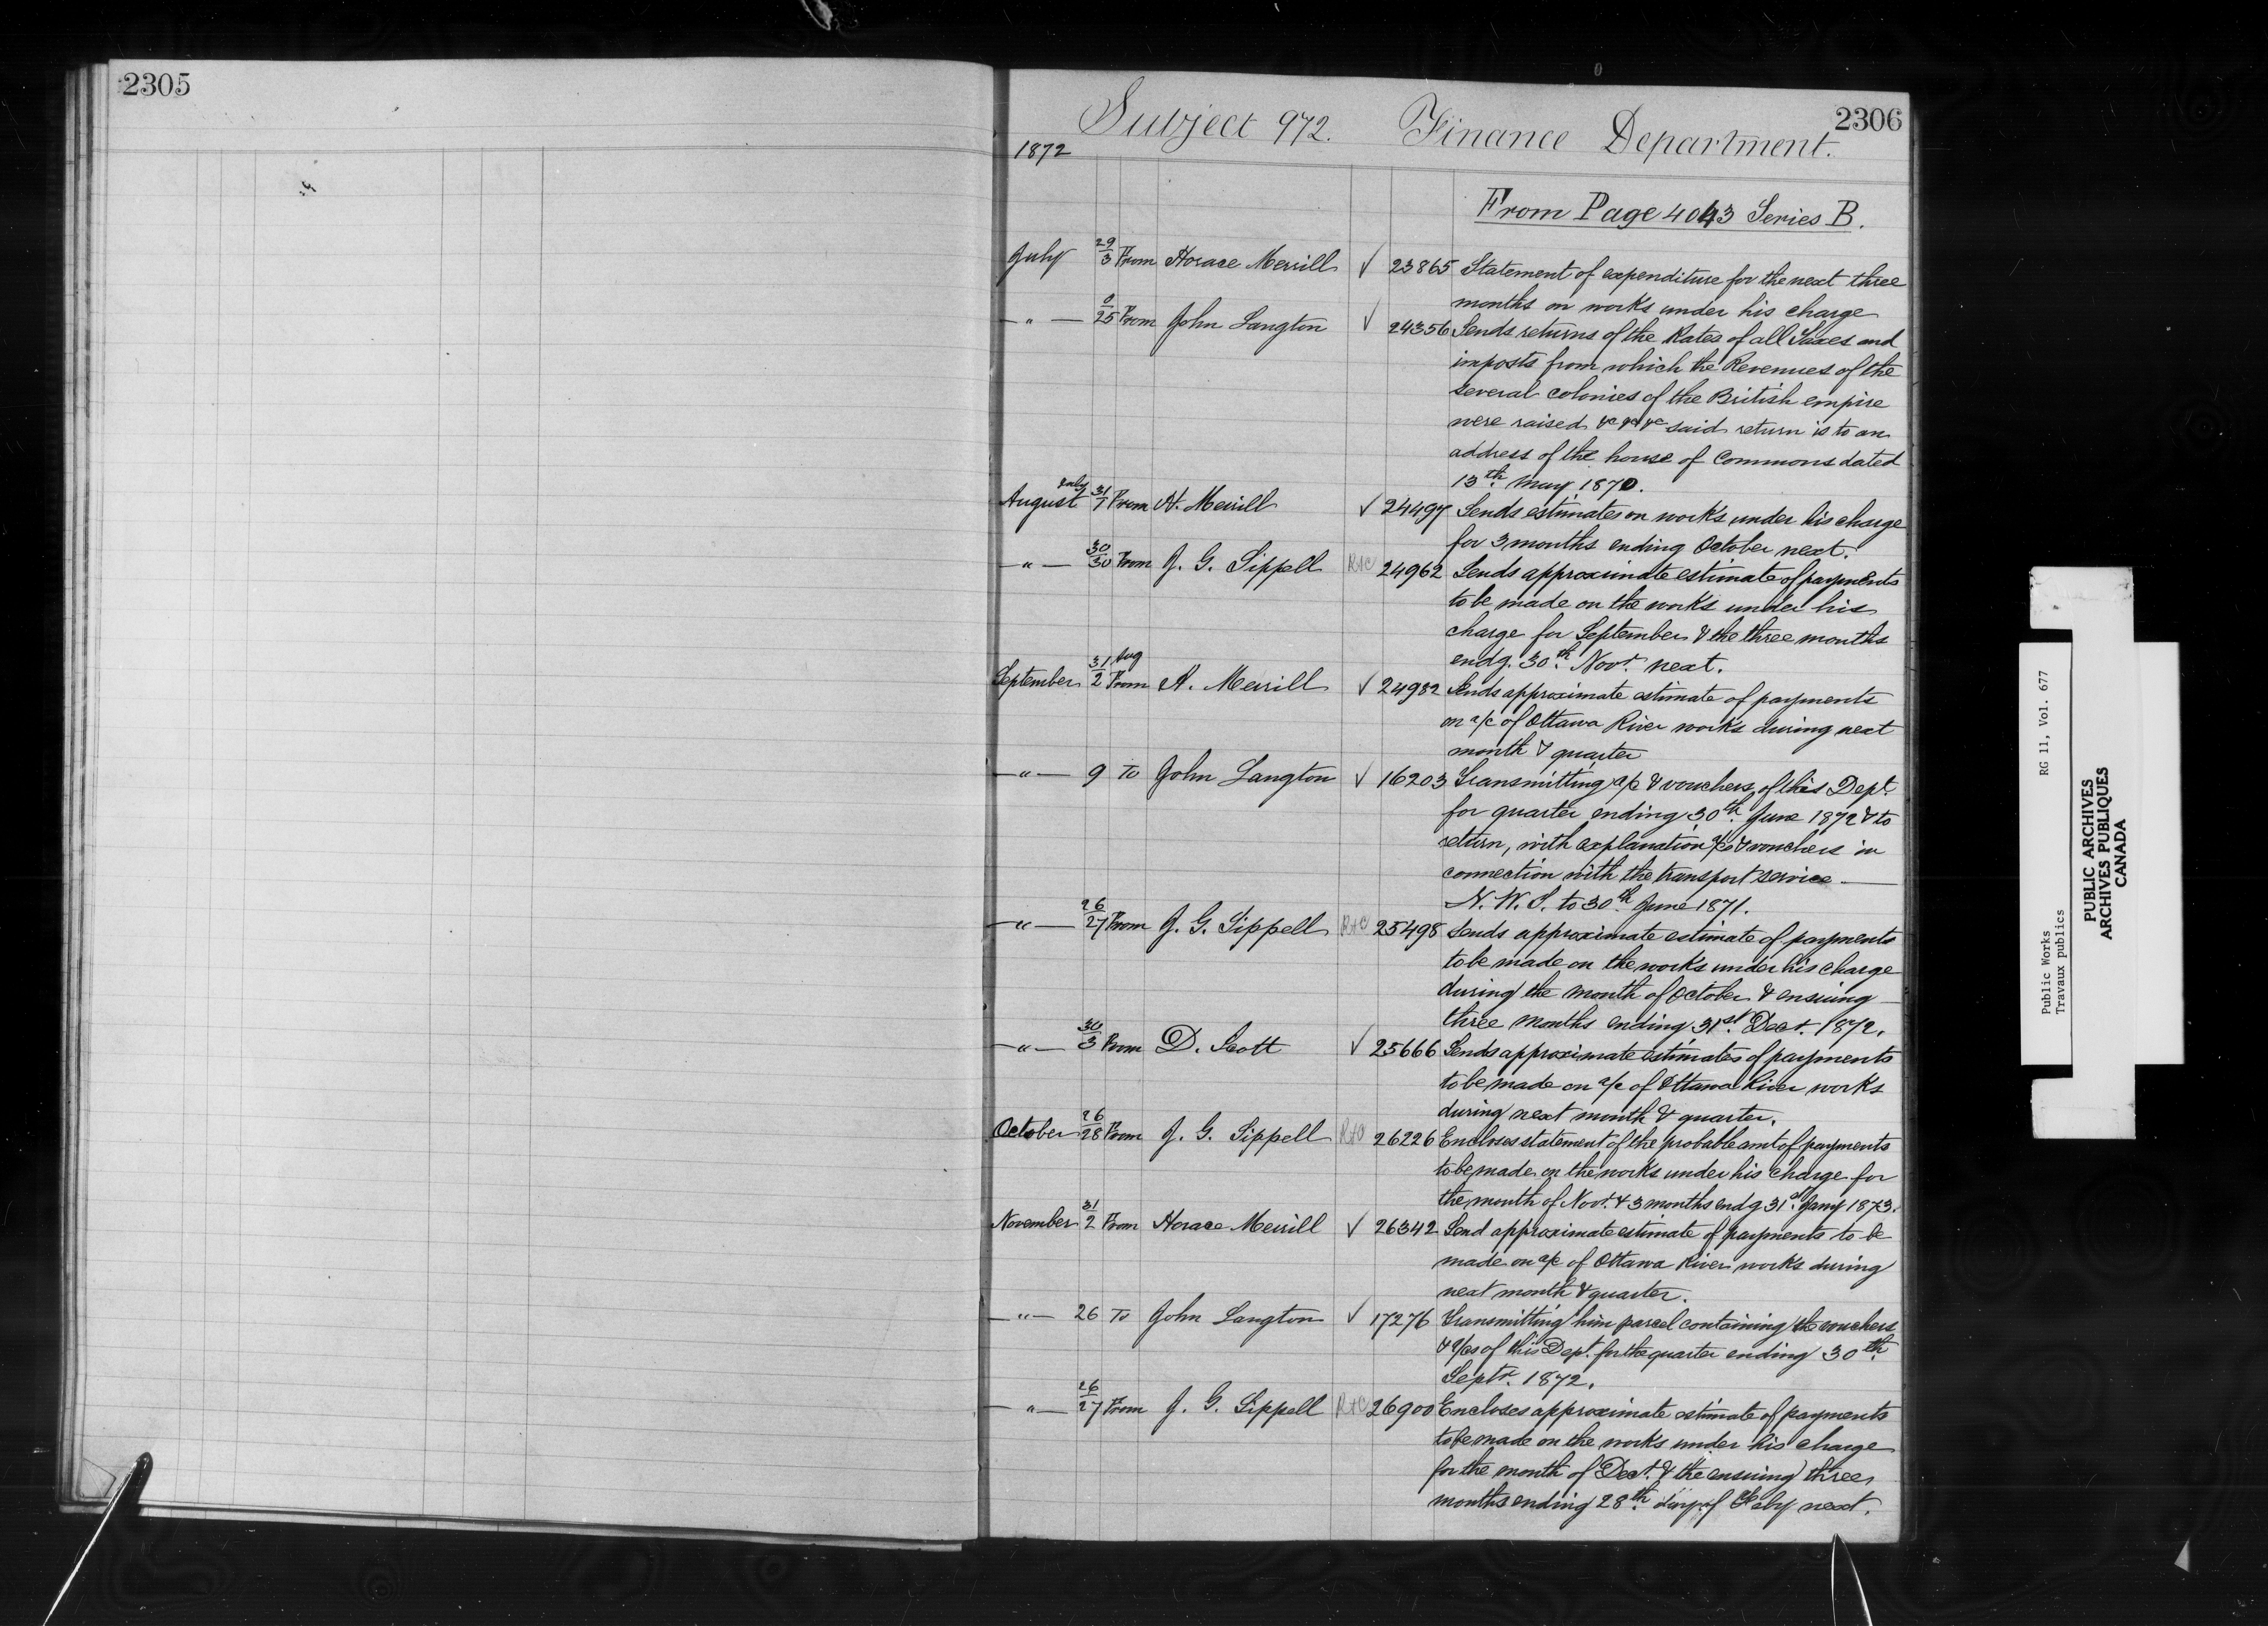 2305
2306
Subject 972. Finance Department.
1872
From Page 4043 Series B.
July 29/3 From Horace Merrill √ 23865 Statement of expenditure for the next three
months on works under his charge
—"— 25 From John Langton √ 24356 Sends returns of the Rates of all Taxes and
imposts from which the Revenues of the
several colonies of the British empire
were raised &c &c &c said return is to an
address of the house of Commons dated
13th. May 1870.
August July 31/1 From H. Merrill √ 24497 Sends estimates on works under his charge
for 3 months ending October next.
—"— 30/30 From J. G. Sippell R&C 24962 Sends approximate estimate of payments
to be made on the works under his
charge for September & the three months
endg. 30th. Novr. next.
September 31 Aug/2 From H. Merrill √ 24982 Sends approximate estimate of payments
on a/c of Ottawa River works during next
month & quarter
—"— 9 To John Langton √ 16203 Transmitting a/c & vouchers of this Dept.
for quarter ending 30th. June 1872 & to
return, with explanation a/cs & vouchers in
connection with the transport service —
N. W. T. to 30th. June 1871.
—"— 26/27 From J. G. Sippell R&C 25498 Sends approximate estimate of payments
to be made on the works under his charge
during the month of October & ensuing
three months ending 31st. Decr. 1872.
—"— 30/3 From D. Scott √ 25666 Sends approximate estimates of payments
to be made on a/c of Ottawa River works
during next month & quarter.
October 26/28 From J. G. Sippell R&C 26226 Encloses statement of the probable amt of payments
to be made on the works under his charge for
the month of Novr. & 3 months endg 31st. Jany 1873.
November 31/2 From Horace Merrill √ 26342 Send approximate estimate of payments to be
made on a/c of Ottawa River works during
next month & quarter.
—"— 26 To John Langton √ 17276 Transmitting him parcel containing the vouchers
& a/cs of this Dept. for the quarter ending 30th.
Septr. 1872.
—"— 26/27 From J. G. Sippell R&C 26900 Encloses approximate estimate of payments
to be made on the works under his charge
for the month of Decr. & the ensuing three
months ending 28th. day of Feby next.
Public Works RG 11, Vol. 677
Travaux publics
PUBLIC ARCHIVES
ARCHIVES PUBLIQUES
CANADA